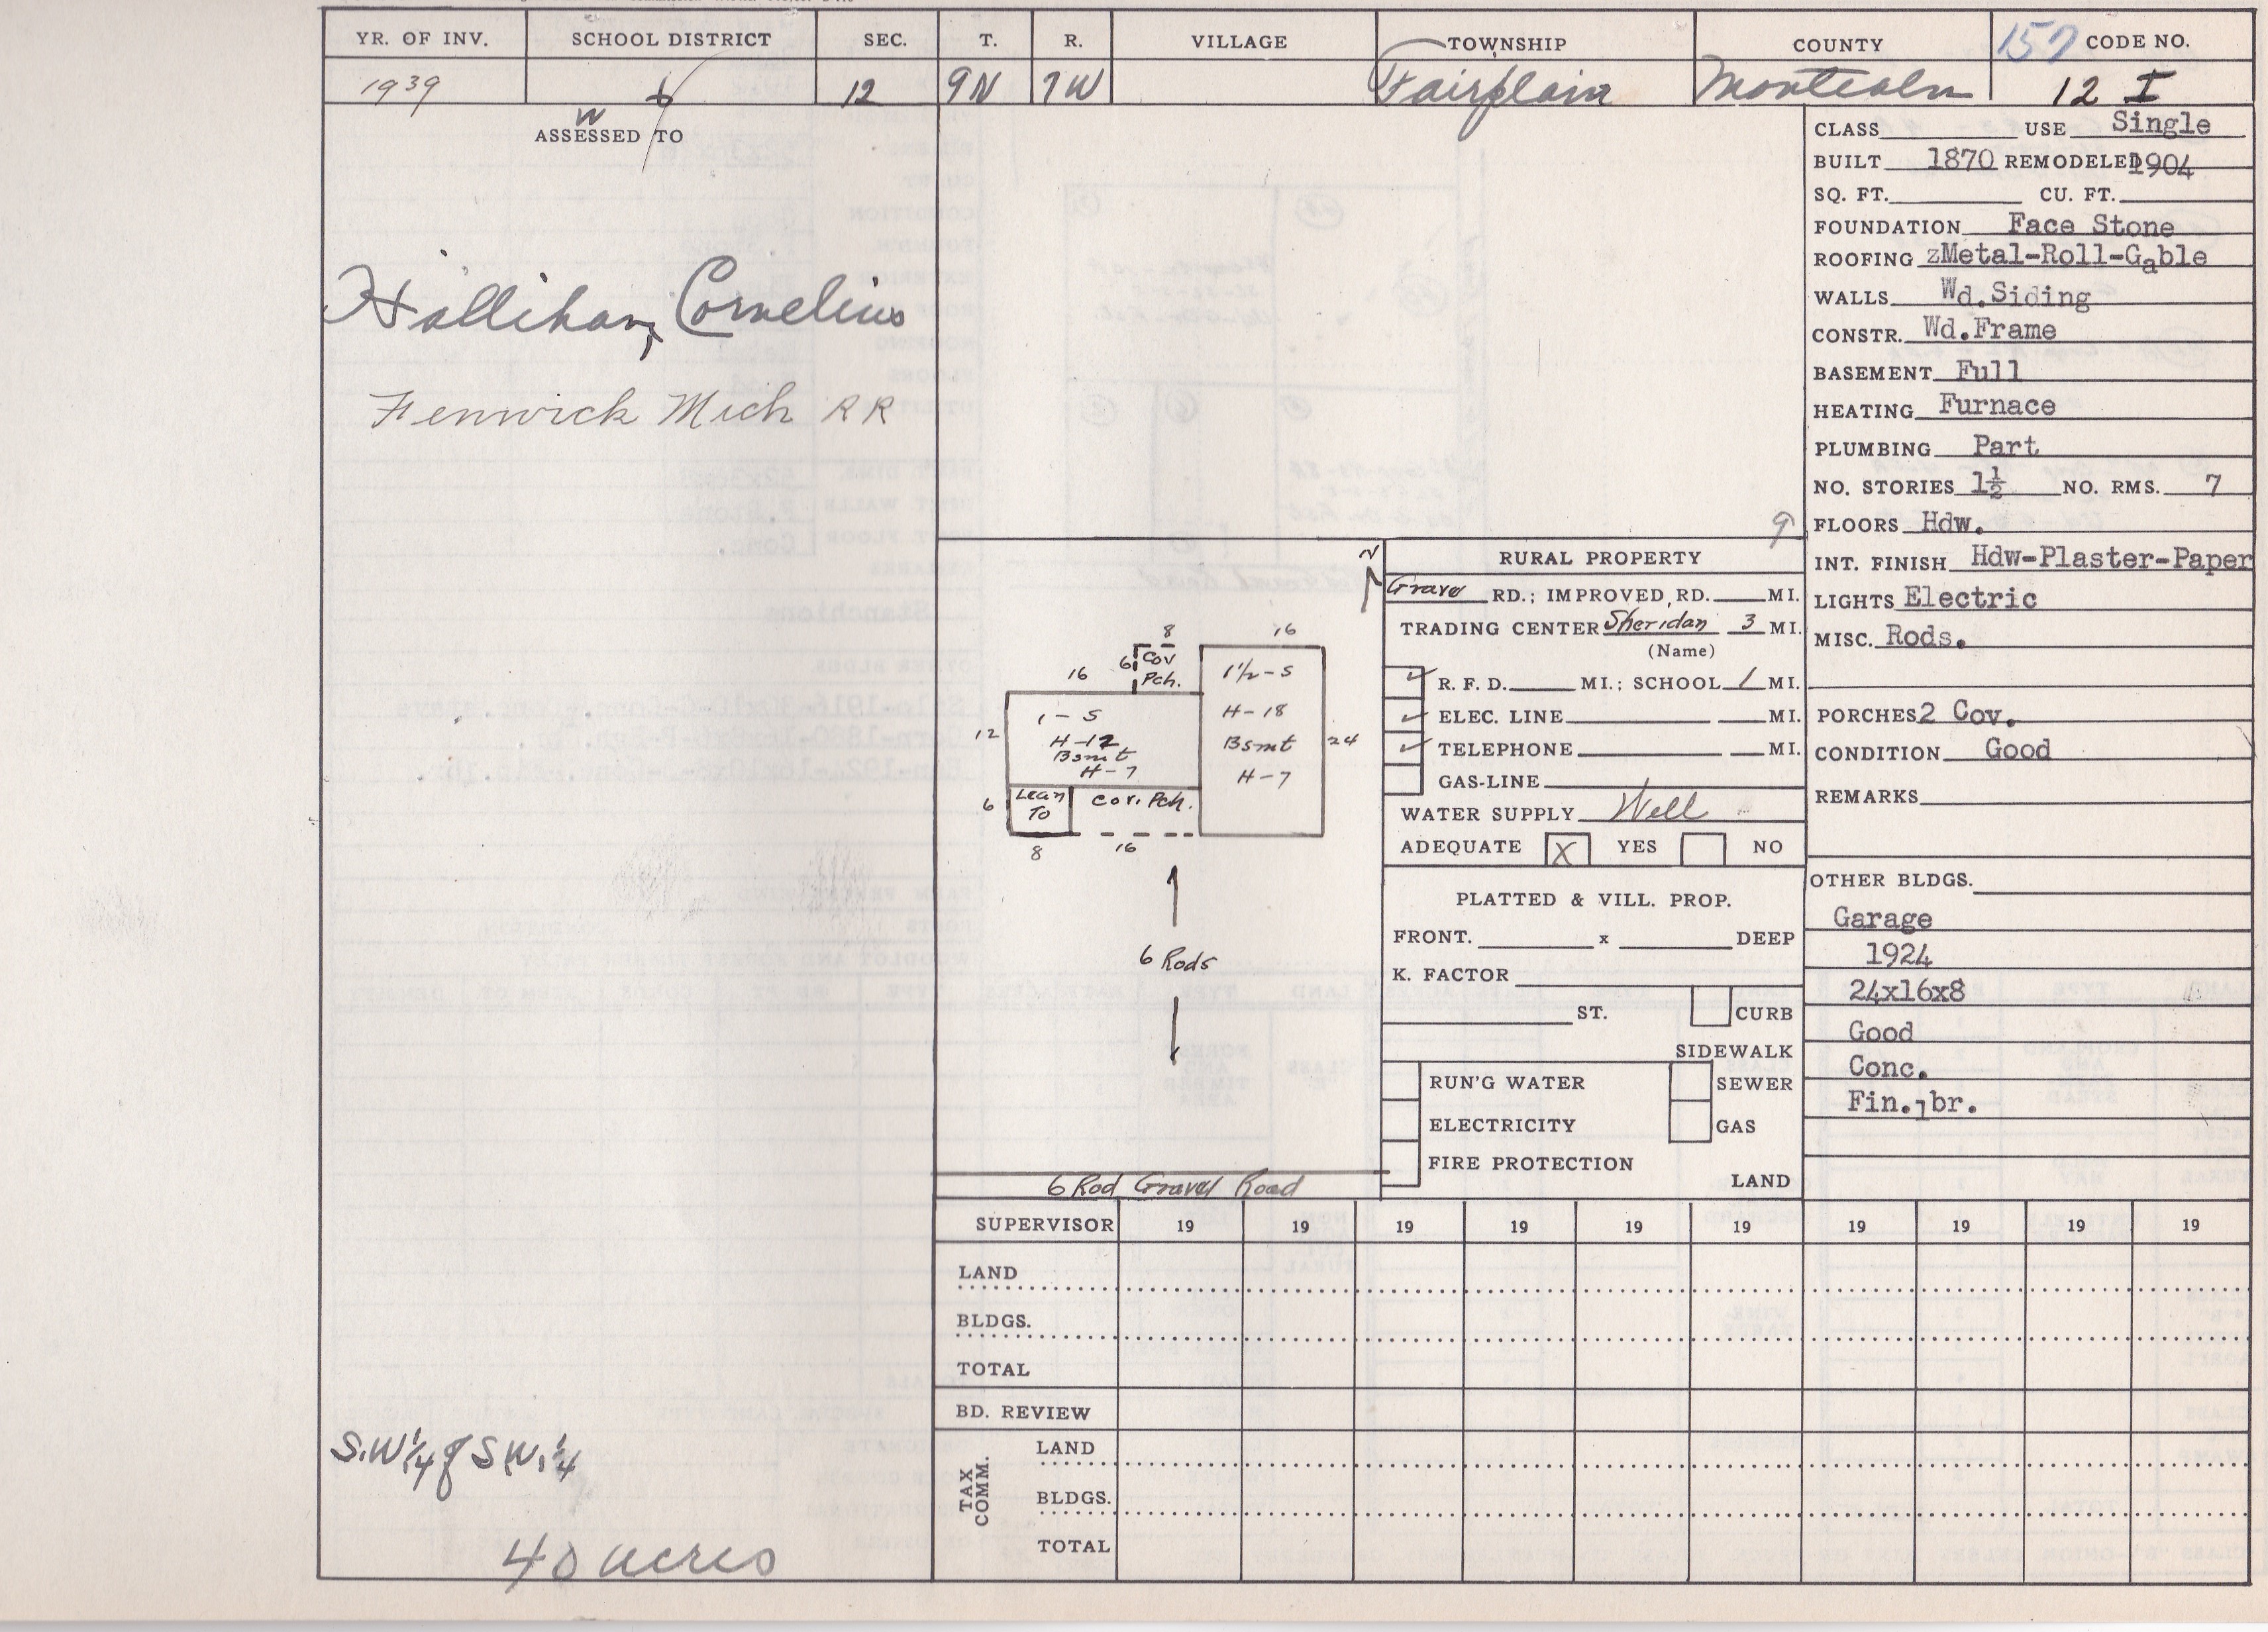 YR. OF INV. SCHOOL DISTRICT SEC. T. R. VILLAGE TOWNSHIP COUNTY 157 CODE NO.
1939 6 12 9N 7W Fairplain Montcalm 12 I
W
ASSESSED TO
Hallihan, Cornelius
Fenwick Mich RR
S.W 1/4 of S.W. 1/4
40 acres
N
8
16
16
6
Cov
Pch.
1-S
H-12
Bsmt
H-7
12
1 1/2-S
H-18
Bsmt
H-7
24
6
Lean
To
Cov. Pch.
8
16
6 Rods
6 Rod Gravel Road
9
RURAL PROPERTY
Gravel RD.; IMPROVED, RD. MI.
TRADING CENTER Sheridan 3 MI.
(Name)
✓ R. F. D. MI.; SCHOOL 1 MI.
✓ ELEC. LINE MI.
✓ TELEPHONE MI.
GAS-LINE
WATER SUPPLY Well
ADEQUATE X YES NO
PLATTED & VILL. PROP.
FRONT. x DEEP
K. FACTOR
ST. CURB
SIDEWALK
RUN'G WATER SEWER
ELECTRICITY GAS
FIRE PROTECTION
LAND
CLASS USE Single
BUILT 1870 REMODELED 1904
SQ. FT. CU. FT.
FOUNDATION Face Stone
ROOFING zMetal-Roll-Gable
WALLS Wd.Siding
CONSTR. Wd.Frame
BASEMENT Full
HEATING Furnace
PLUMBING Part
NO. STORIES 1½ NO. RMS. 7
FLOORS Hdw.
INT. FINISH Hdw-Plaster-Paper
LIGHTS Electric
MISC. Rods.
PORCHES 2 Cov.
CONDITION Good
REMARKS
OTHER BLDGS.
Garage
1924
24x16x8
Good
Conc.
Fin. br.
SUPERVISOR 19 19 19 19 19 19 19 19 19 19
LAND
BLDGS.
TOTAL
BD. REVIEW
TAX COMM.
LAND
BLDGS.
TOTAL